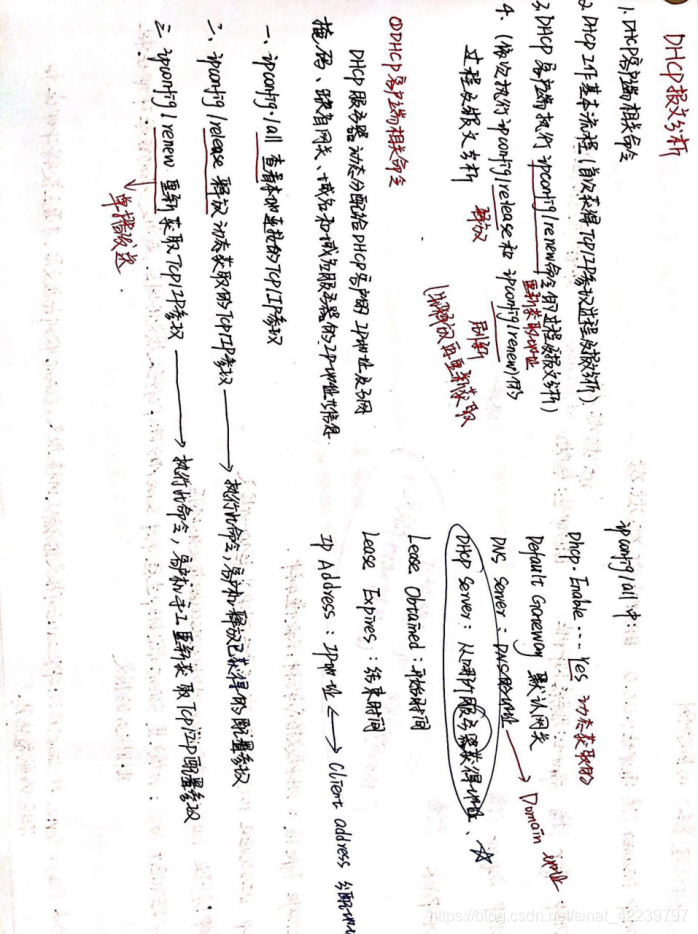 DHCP报文分析
1. DHCP客户端相关命令
2. DHCP工作基本流程(首次获得TCP/IP参数过程及报文分析).
3. DHCP客户端执行ipconfig/renew命令的过程及报文分析)
重新获取ip地址
4. (依次执行ipconfig/release和ipconfig/renew)的
释放 刷新
过程及报文分析
(即释放再重新获取
①DHCP客户端相关命令
DHCP服务器动态分配给DHCP客户端IP地址及子网
掩码、缺省网关、域名和域名服务器的IP地址等信息.
一. ipconfig/all 查看本地连接的TCP/IP参数
二. ipconfig/release 释放动态获取的TCP/IP参数 → 执行此命令,客户机释放已获得的配置参数
三 ipconfig/renew 重新获取TCP/IP参数 → 执行此命令,客户机手工重新获取TCP/IP配置参数
单播发送
ipconfig/all中:
Dhcp. Enable --- Yes 动态获取的
Default Gateway 默认网关
DNS Server: DNS的地址 → Domain ip地址
DHCP Server: 从哪个服务器获得地址、☆
Lease Obtained: 开始时间
Lease Expires: 结束时间
IP Address: IP地址 ↔ Client address 分配地址
https://blog.csdn.net/sinat_42239797